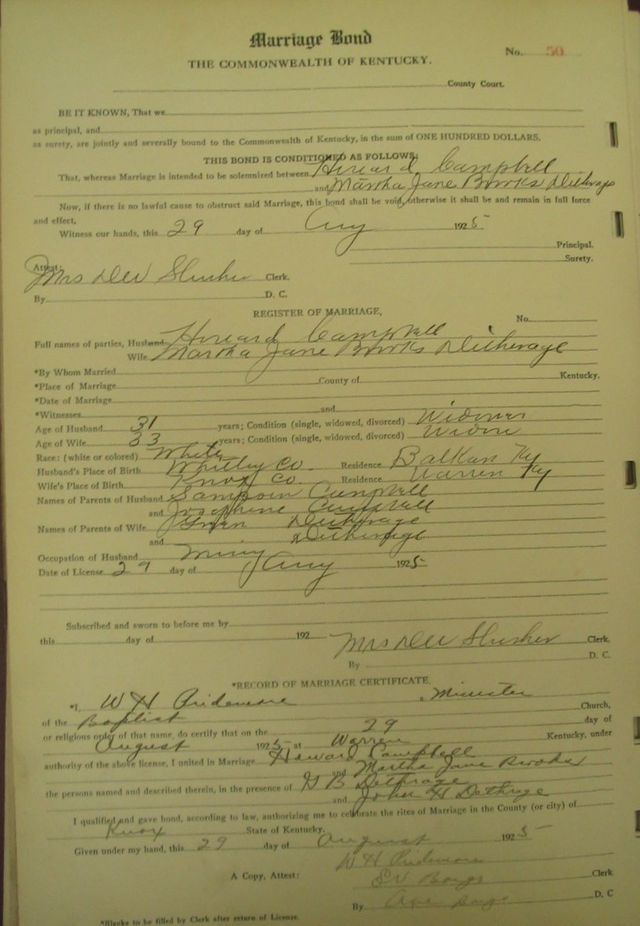 Marriage Bond
No. 50
THE COMMONWEALTH OF KENTUCKY.
County Court.
BE IT KNOWN, That we
as principal, and
as surety, are jointly and severally bound to the Commonwealth of Kentucky, in the sum of ONE HUNDRED DOLLARS.
THIS BOND IS CONDITIONED AS FOLLOWS:
That, whereas Marriage is intended to be solemnized between Howard Campbell
and Martha Jane Brooks Detherage
Now, if there is no lawful cause to obstruct said Marriage, this bond shall be void, otherwise it shall be and remain in full force
and effect.
Witness our hands, this 29 day of Aug 1925
Principal.
Surety.
Attest:
Mrs Slusher Clerk.
By D. C.
REGISTER OF MARRIAGE,
No.
Full names of parties, Husband Howard Campbell
Wife Martha Jane Brooks Detherage
*By Whom Married
*Place of Marriage County of Kentucky.
*Date of Marriage
*Witnesses and
Age of Husband 31 years; Condition (single, widowed, divorced) Widower
Age of Wife 33 years; Condition (single, widowed, divorced) Widow
Race: (white or colored) White
Husband's Place of Birth Whitley Co. Residence Balkan Ky
Wife's Place of Birth Knox Co. Residence Warren Ky
Names of Parents of Husband Sampson Campbell
and Josephine Campbell
Names of Parents of Wife Detherage
and Detherage
Occupation of Husband Mining
Date of License 29 day of Aug 1925
Subscribed and sworn to before me by
this day of 192
Mrs Slusher Clerk.
By D. C.
*RECORD OF MARRIAGE CERTIFICATE.
*I, W H Pridemore a Minister
of the Baptist Church,
or religious order of that name, do certify that on the 29 day of
August 1925 at Warren Kentucky, under
authority of the above license, I united in Marriage Howard Campbell
and Martha Jane Brooks
the persons named and described therein, in the presence of G B Dethrage
and John H Dethrage
I qualified and gave bond, according to law, authorizing me to celebrate the rites of Marriage in the County (or city) of
Knox State of Kentucky.
Given under my hand, this 29 day of August 1925
W H Pridemore
A Copy, Attest: Clerk
By D. C
*Blanks to be filled by Clerk after return of License.